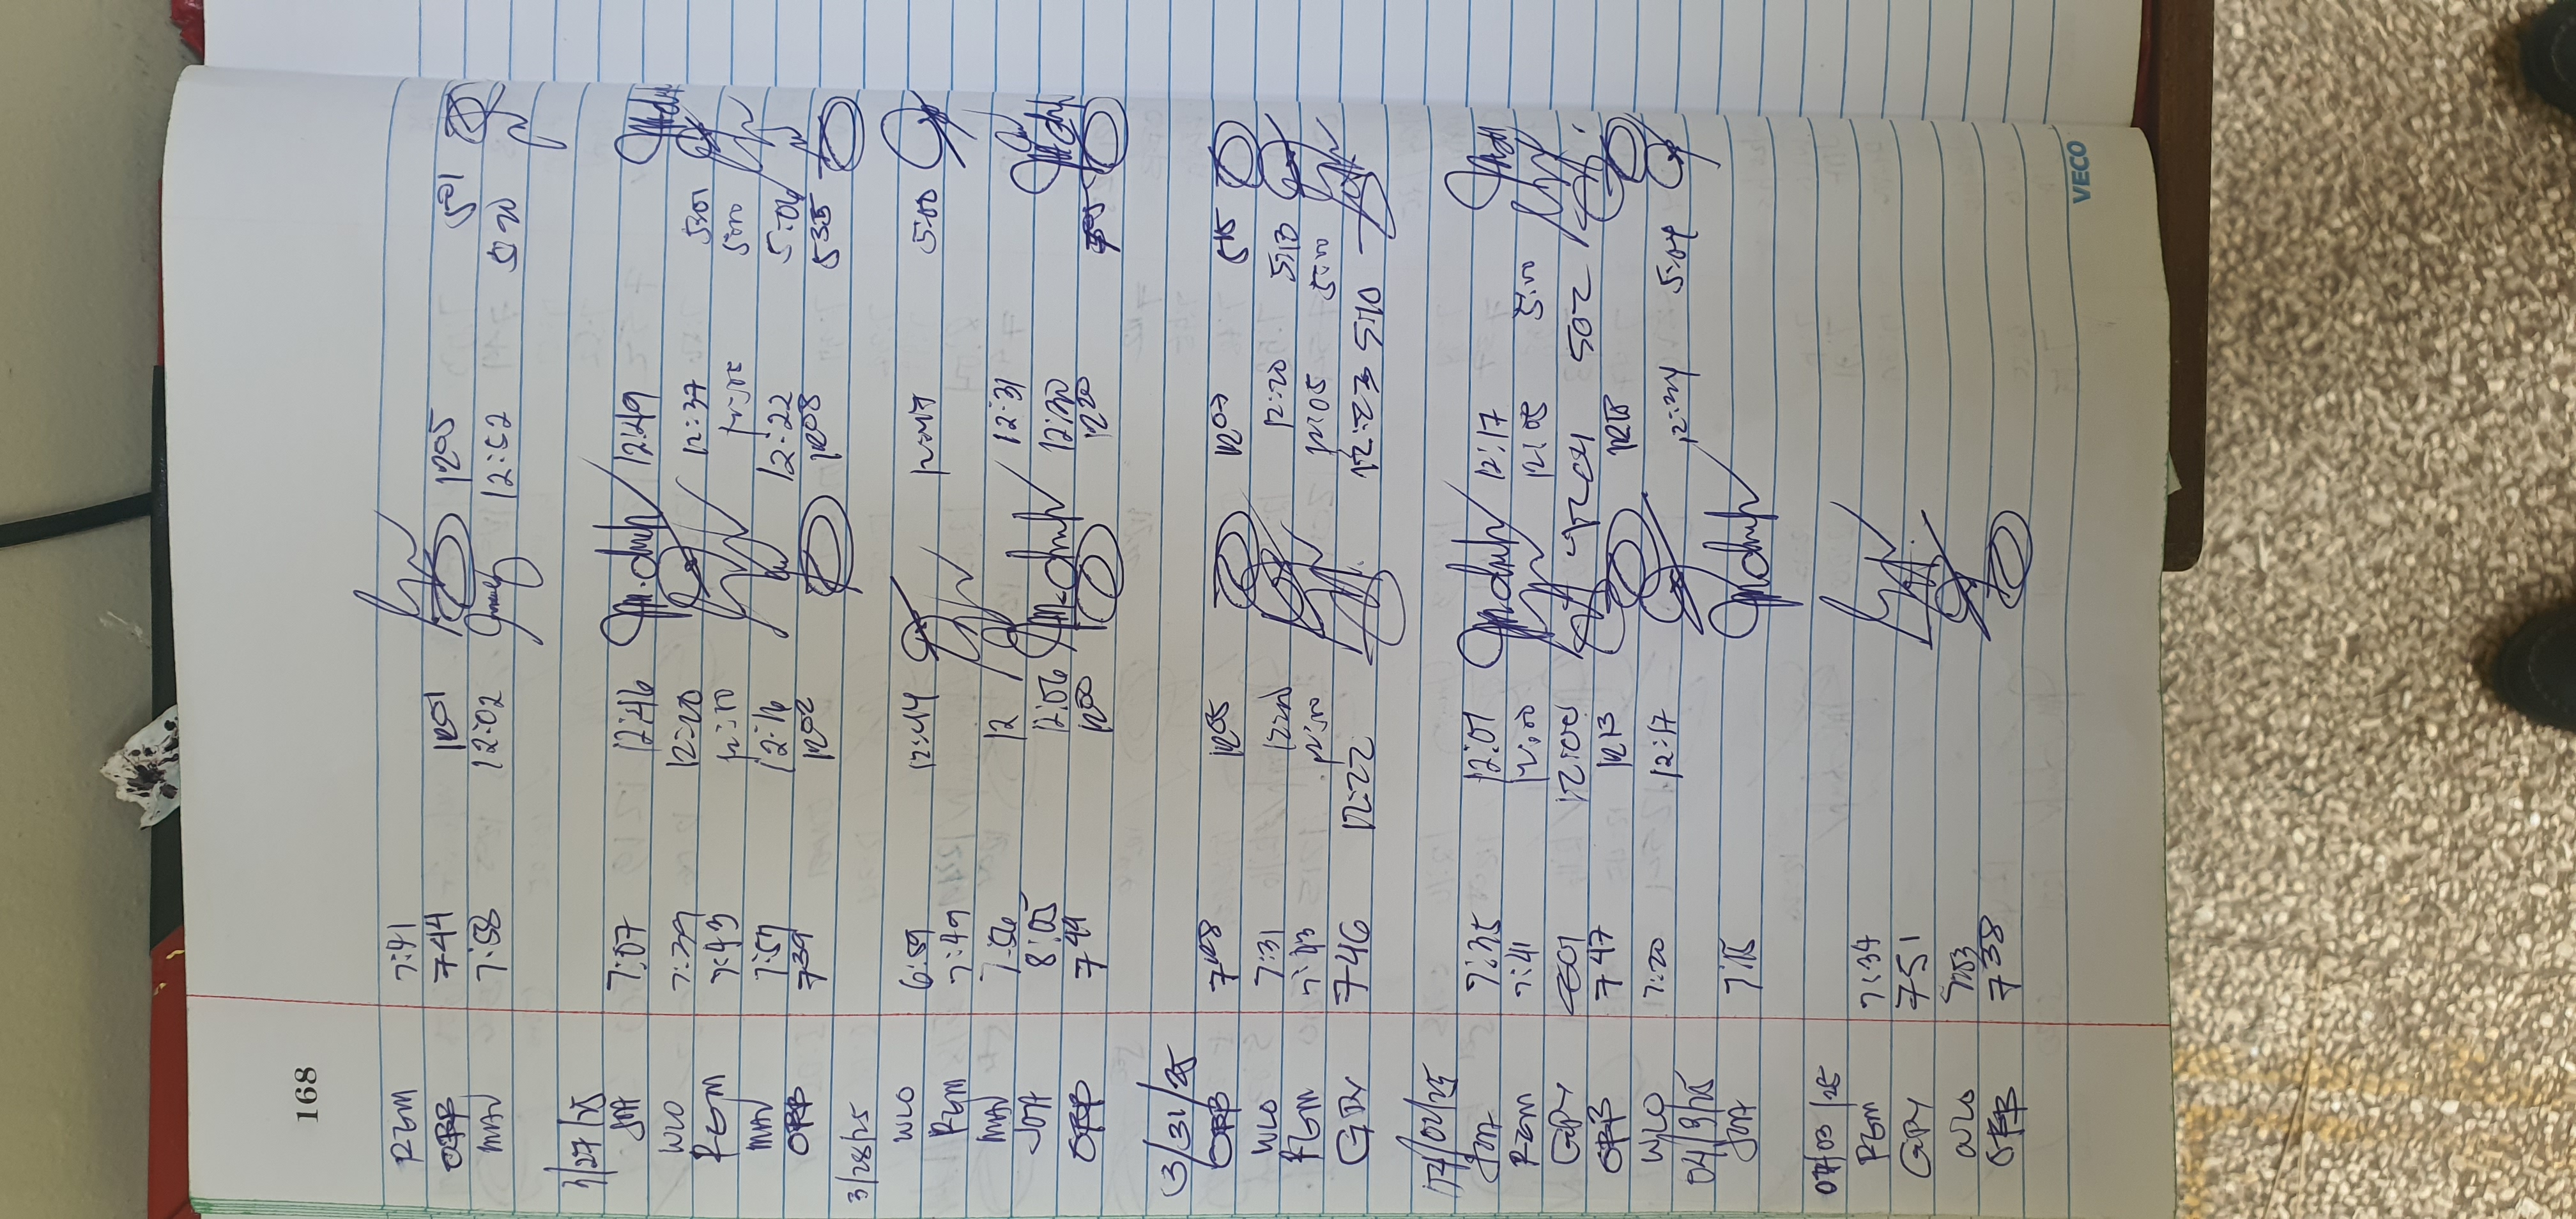 168
RGM 7:41
ORB 7:44 1201 1205 501
MAV 7:58 12:02 12:52 5:20
3/27/25
JOA 7:07 12:46 12:49
WLO 7:39 12:20 12:37 5:01
RGM 7:43 12:00 5:00
MAV 7:57 12:16 12:22 5:04
ORB 739 1202 1208 535
3/28/25
WLO 6:59 12:44 12:47 5:00
RGM 7:49
MAV 7:56 12 12:31
JOA 8:05 12:06 12:30
ORB 7 44 1200 1220 505
3/31/25
ORB 748 1205 1207 515
WLO 7:31 12:20 12:20 5:13
RGM 7:43 12:00 12:05 5:00
GPY 746 12:22 12:23 5:10
04/02/25
JOA 7:35 12:07 12:17
RGM 7:41 12:00 12:08 5:00
GPY 12:04 502
ORB 7 47 1213 1218
WLO 7:20 12:17 12:24 5:04
04/3/25
JOA 7:15
04/03/25
RGM 7:34
GPY 751
WLO 7:53
ORB 738
VECO